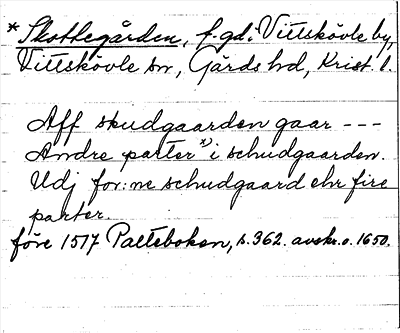 * Skottegården, f. gd. i Vittskövle by,
Vittskövle sn, Gärds hd, Krist. l.
Aff skudgaarden gaar ---
Andre parter x) i schudgaarden.
Udj for:ne schudgaard ehr fire
parter.
före 1517 Palteboken, s. 362. avskr. o. 1650.